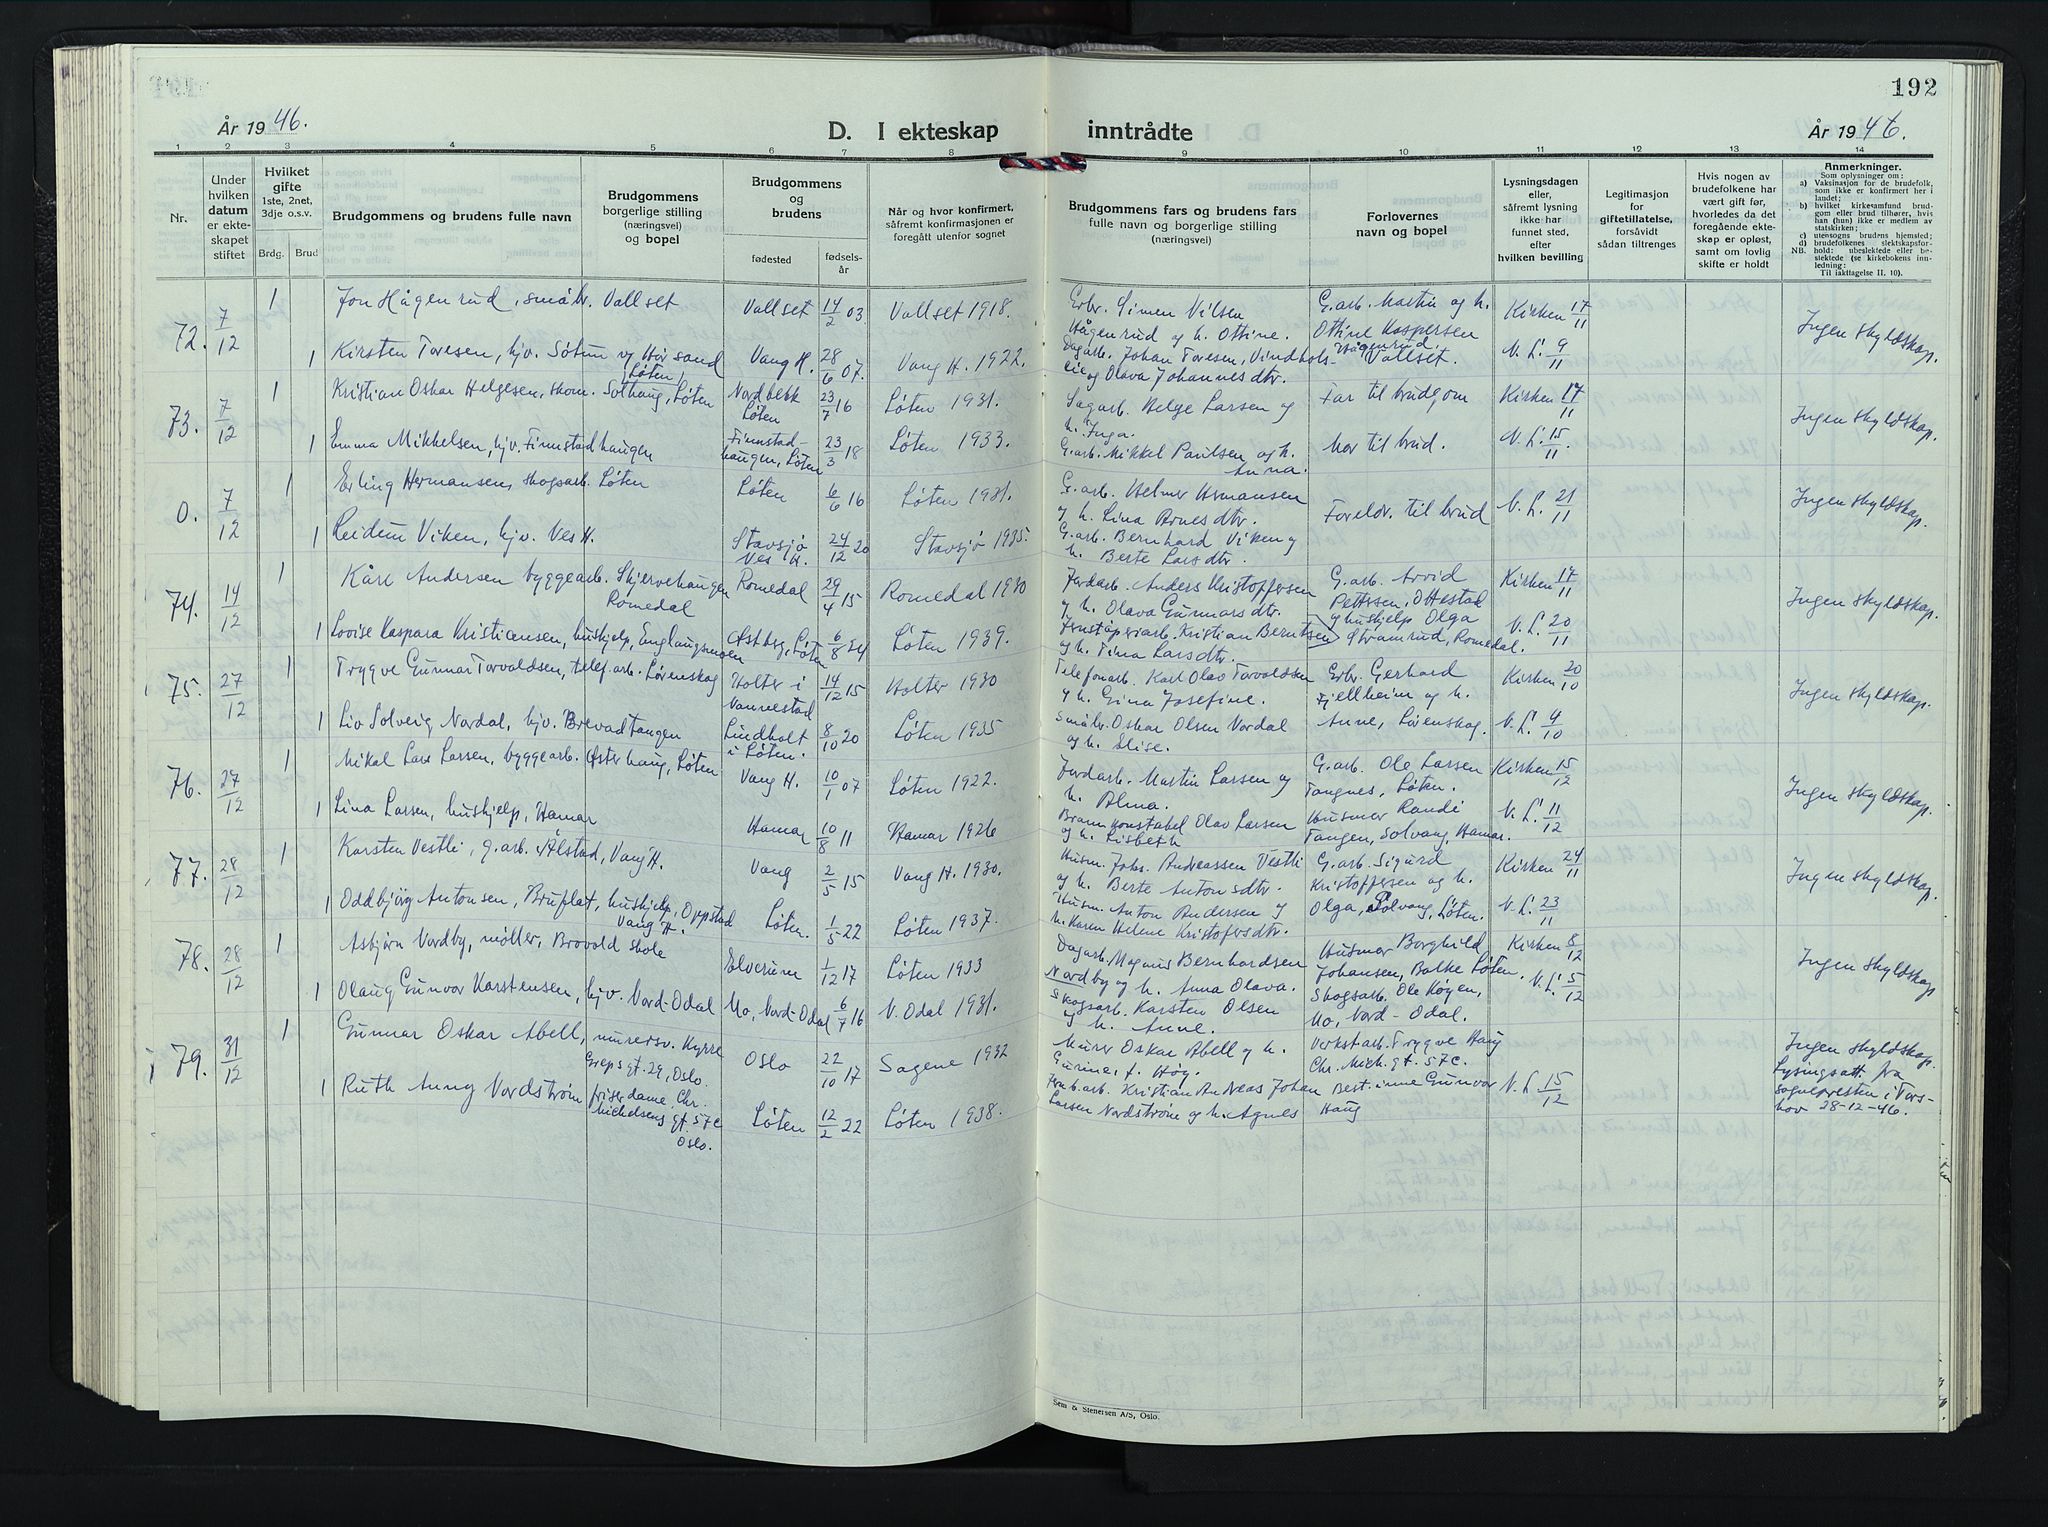 192
År 1946.
D. I ekteskap inntrådte
År 1946.
1 2 3 4 5 6 7 8 9 10 11 12 13 14
Nr.
Under hvilken datum er ekte-skapet stiftet
Hvilket gifte 1ste, 2net, 3dje o.s.v.
Brdg. Brud
Brudgommens og brudens fulle navn
Brudgommens borgerlige stilling (næringsvei) og bopel
Brudgommens og brudens
fødested
fødsels-år
Når og hvor konfirmert, såfremt konfirmasjonen er foregått utenfor sognet
Brudgommens fars og brudens fars fulle navn og borgerlige stilling (næringsvei)
Forlovernes navn og bopel
Lysningsdagen eller, såfremt lysning ikke har funnet sted, efter hvilken bevilling
Legitimasjon for giftetillatelse, forsåvidt sådan tiltrenges
Hvis nogen av brudefolkene har vært gift før, hvorledes da det foregående ekte-skap er opløst, samt om lovlig skifte er holdt
Anmerkninger.
Som oplysning om:
a) Vaksinasjon for de brudefolk, som ikke er konfirmert her i laudet;
b) hvilket kirkesamfund brud-gom eller brud tilhører, hvis han (hun) ikke er medlem av statskirken;
c) utensogns brudens hjemsted;
d) brudefolkenes slektskapsfor-
NB. hold: ubeslektede eller be-slektede (se kirkebokens inn-ledning:
Til iakttagelse II. 10).
72. 7/12 1 Jon Hågenrud, småbr. Vallset Vallset 14/2 03 Vallset 1918. Erbr. Simen Nilsen Hågenrud og h. Ottine. G.arb. Martin og h. Ottine Kaspersen Hågenrud, Vallset. Kirken 17/11 Ingen skyldskap.
1 Kirsten Toresen, hjv. Løten, Vang H. 28/6 07. Vang H. 1922. Dagarb. Johan Toresen, Vindhols-eie og Olava Johannesdtr. N.L. 9/11
73. 7/12 1 Kristian Oskar Helgesen, skom. Solhaug, Løten Nordbekk Løten 23/7 16 Løten 1931. Sagarb. Helge Larsen og h. Inga. Far til brudgom Kirken 17/11 Ingen skyldskap.
1 Emma Mikkelsen, hjv. Finnstadhaugen Finnstad-haugen, Løten 23/3 18 Løten 1933. G.arb. Mikkel Paulsen og h. Anna. Mor til brud. N.L. 15/11
0. 7/12 1 Erling Hermansen, skogsarb. Løten Løten 6/6 16 Løten 1931. G.arb. Helmer Hermansen og h. Lina Arnesdtr. Forelov. til brud N.L. 21/11 Ingen skyldskap.
1 Reidun Viken, hjv. Nes H. Stavsjø Nes H. 24/12 20 Stavsjø 1935. G.arb. Bernhard Viken og h. Berte Larsdtr.
74. 14/12 1 Kåre Andersen byggearb. Skjervehaugen Romedal Romedal 29/4 15 Romedal 1930 Jordarb. Anders Kristoffersen og h. Olava Gunnarsdtr. G.arb. Arvid Pettersen, Ottestad og hushjelp Olga Strømrud, Romedal. Kirken 17/11 Ingen skyldskap.
1 Lovise Kaspara Kristiansen, hushjelp, Englaugsmoen Østbsg, Løten 6/8 24 Løten 1939. Jernstøperarb. Kristian Berntsen og h. Tina Larsdtr. N.L. 20/11
75. 27/12 1 Trygve Gunnar Torvaldsen, telef.arb. Lørenskog Holter i Nannestad 14/12 15 Holter 1930 Telefonarb. Karl Olav Torvaldsen og h. Gina Josefine. Erbr. Gerhard Fjellheim og h. Anne, Lørenskog. Kirken 20/10 Ingen skyldskap.
1 Liv Solveig Nordal, hjv. Brevadtangen Lindholt i Løten. 8/10 20 Løten 1935 Småbr. Oskar Olsen Nordal og h. Elise. N.L. 4/10
76. 27/12 1 Mikal Lars Larsen, byggearb. Østerhaug, Løten Vang H. 10/1 07 Løten 1922. Jordarb. Martin Larsen og h. Alma. G.arb. Ole Larsen Tangnes, Løten. Kirken 15/12 Ingen skyldskap.
1 Lina Larsen, hushjelp, Hamar Hamar 10/8 11 Hamar 1926 Brannkonstabel Olav Larsen og h. Lisbeth Husmor Randi Tangen, Solvang, Hamar. N.L. 11/12
77. 28/12 1 Karsten Vestli, g.arb. Ålstad, Vang H. Vang 2/5 15 Vang H. 1930. Husm. Johs. Andreassen Vestli og h. Berte Antonsdtr. G.arb. Sigurd Kristoffersen og h. Olga, Solvang, Løten. Kirken 24/11 Ingen skyldskap.
1 Oddbjørg Antonsen, Bruflat, hushjelp, Oppstad Vang H. Løten. 1/5 22 Løten 1937. Husm. Anton Andersen og h. Karen Helene Kristofersdtr. N.L. 23/11
78. 28/12 1 Asbjørn Nordby, møller, Brovold skole Elverum 1/12 17 Løten 1933 Dagarb. Magnus Bernhardsen Nordby og h. Anna Olava. Husmor Borghild Johansen, Balke Løten. Kirken 8/12 Ingen skyldskap
1 Olaug Gunvor Karstensen, hjv. Nord-Odal Mo, Nord-Odal 6/7 16 N. Odal 1931. Skogsarb. Karsten Olsen og h. Anne. Skogsarb. Ole Køgen, Mo, Nord-Odal. N.L. 5/12
79. 31/12 1 Gunnar Oskar Abell, murersv. Kyrre Greps gt. 29, Oslo. Oslo 22/10 17 Sagene 1932 Murer Oskar Abell og h. Gurina, f. Høg. Verkstarb. Trygve Haug Chr. Mich. gt. 57c. Ingen skyldskap. Lysingsatt. fra sognepresten i Tors-hov 28-12-46.
1 Ruth Anny Nordstrøm friserdame, Chr. Michelsens gt. 57c Oslo. Løten 12/2 22 Løten 1938. Jernb.arb. Kristian Andreas Johan Larsen Nordstrøm og h. Agnes Best.inne Gunvor Haug N.L. 15/12
Sem & Stenersen A/S, Oslo.